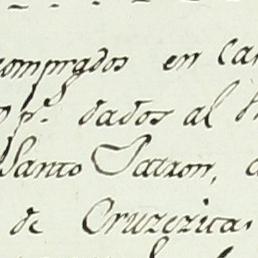 comprados en Ca
p.r dados al
Santo Patron,
de Cruzezita.